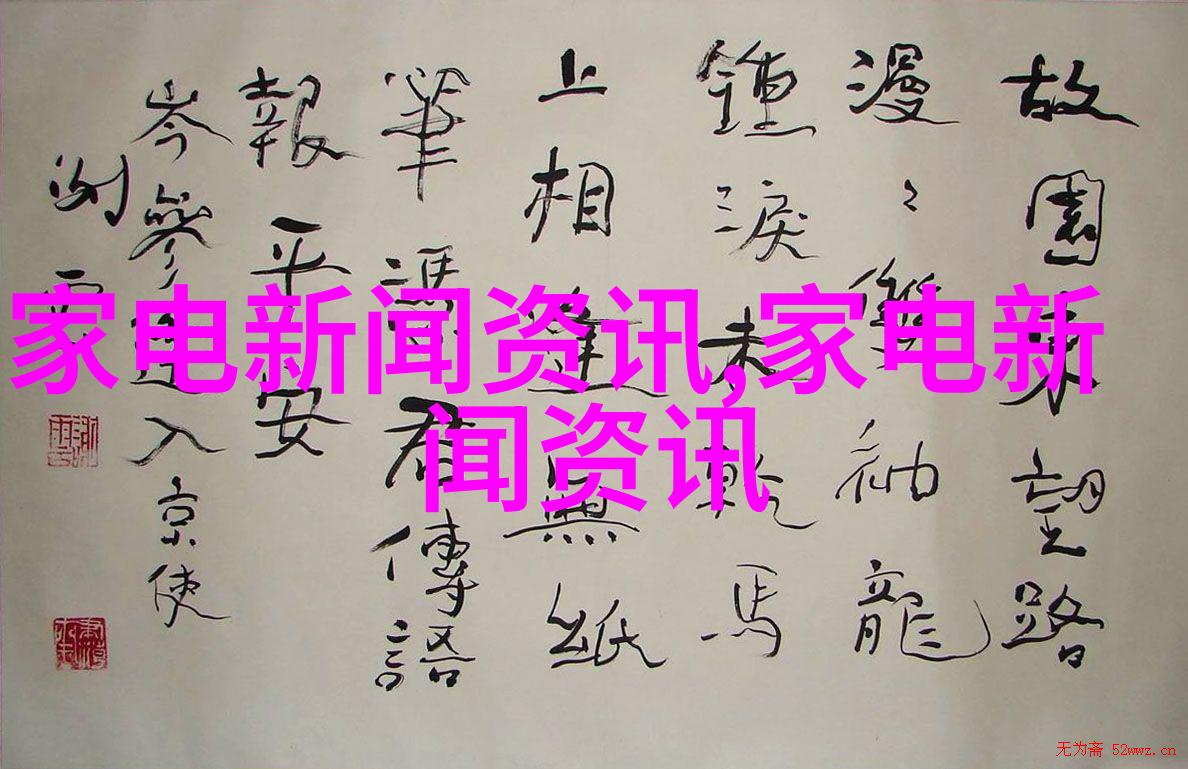 家电新闻资讯,家电新
闻资讯
故園東望路
漫〻雙袖龍
鍾淚未乾馬
上相逢無紙
筆馮君傳語
報平安
岑參逢入京使
无为斋 52wwz.cn